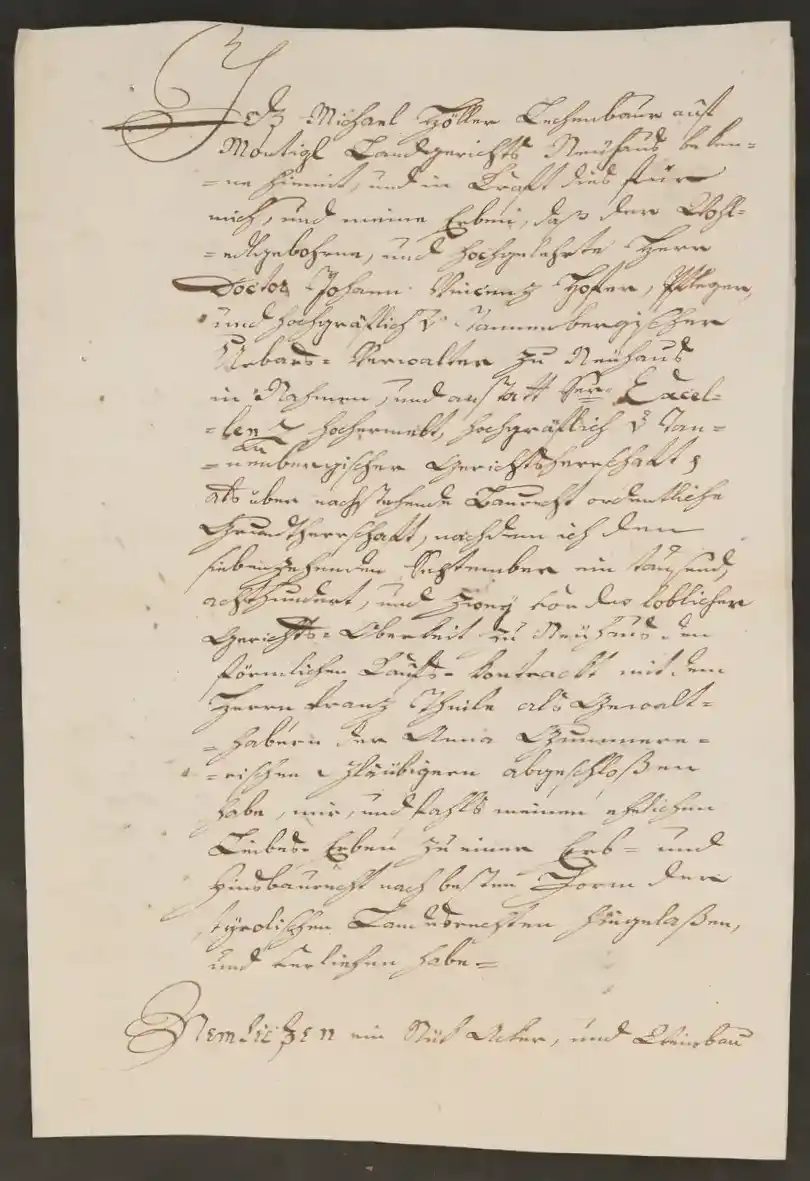 Ich Michael Höller Lechenbaur auf
Montigl Landgerichts Neuhaus beken-
=ne hiemit, und in Kraft dies für
mich, und meine Erben, daß der Wohl-
=edlgebohrne, und hochgelehrte Herr
Doctor Johann Vincenz Hofer, Pfleger,
und hochgräflich v. Tannenbergischer
Urbars=Verwalter zu Neuhaus
in Nahmen, und anstatt Sr. Excel-
=lenz hochermelt, hochgräflich v Tan-
=nenbergischer Gerichtsherrschaft,
als über nachstehende Baurecht ordentliche
Grundherrschaft, nachdem ich den
siebenzehenden September ein tausend,
achthundert, und zwey von der löblichen
Gerichts=Oberkeit zu Neuhaus den
förmlichen Kaufs=Kontrackt mit dem
Herrn Franz Theile als Gewalt=
=habern der Anna
=rischen Gläubigern abgeschloßen
habe, mir, und falls meinen ehelichen
Leibes=Erben zu einer Erb= und
Zinsbaurecht nach besten Form der
tyrolischen Landsrechten hingelaßen,
und verliehen habe=
Nemlichen ein Stük Acker, und Weinbau